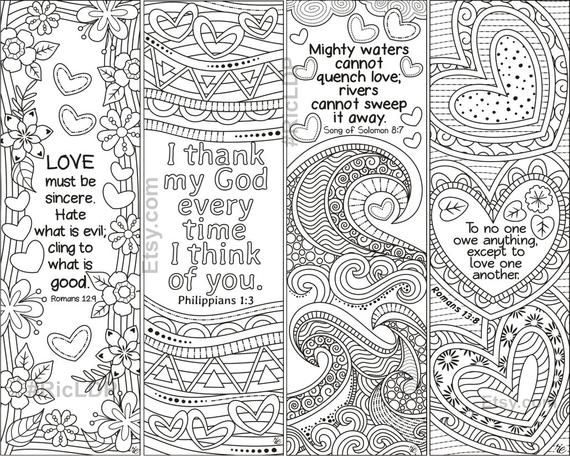 LOVE
must be
sincere.
Hate
what is evil;
cling to
what is
good.
Romans 12:9
#RicLDP
Etsy.com
I thank
my God
every
time
I think
of you.
Philippians 1:3
Mighty waters
cannot
quench love;
rivers
cannot sweep
it away.
Song of Solomon 8:7
#RicLDP
To no one
owe anything,
except to
love one
another.
Romans 13:8
Etsy.com